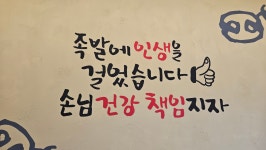 족발에 인생을
걸었습니다
손님 건강 책임지자